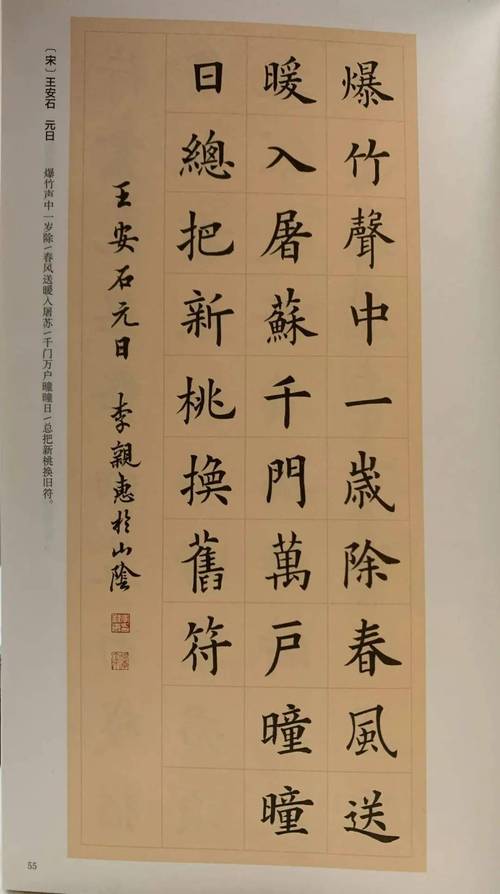 爆竹聲中一歲除春風送
暖入屠蘇千門萬戶曈曈
日總把新桃換舊符
王安石元日 李親惠於山陰
〔宋〕王安石 元日
爆竹声中一岁除/春风送暖入屠苏/千门万户曈曈日/总把新桃换旧符。
55